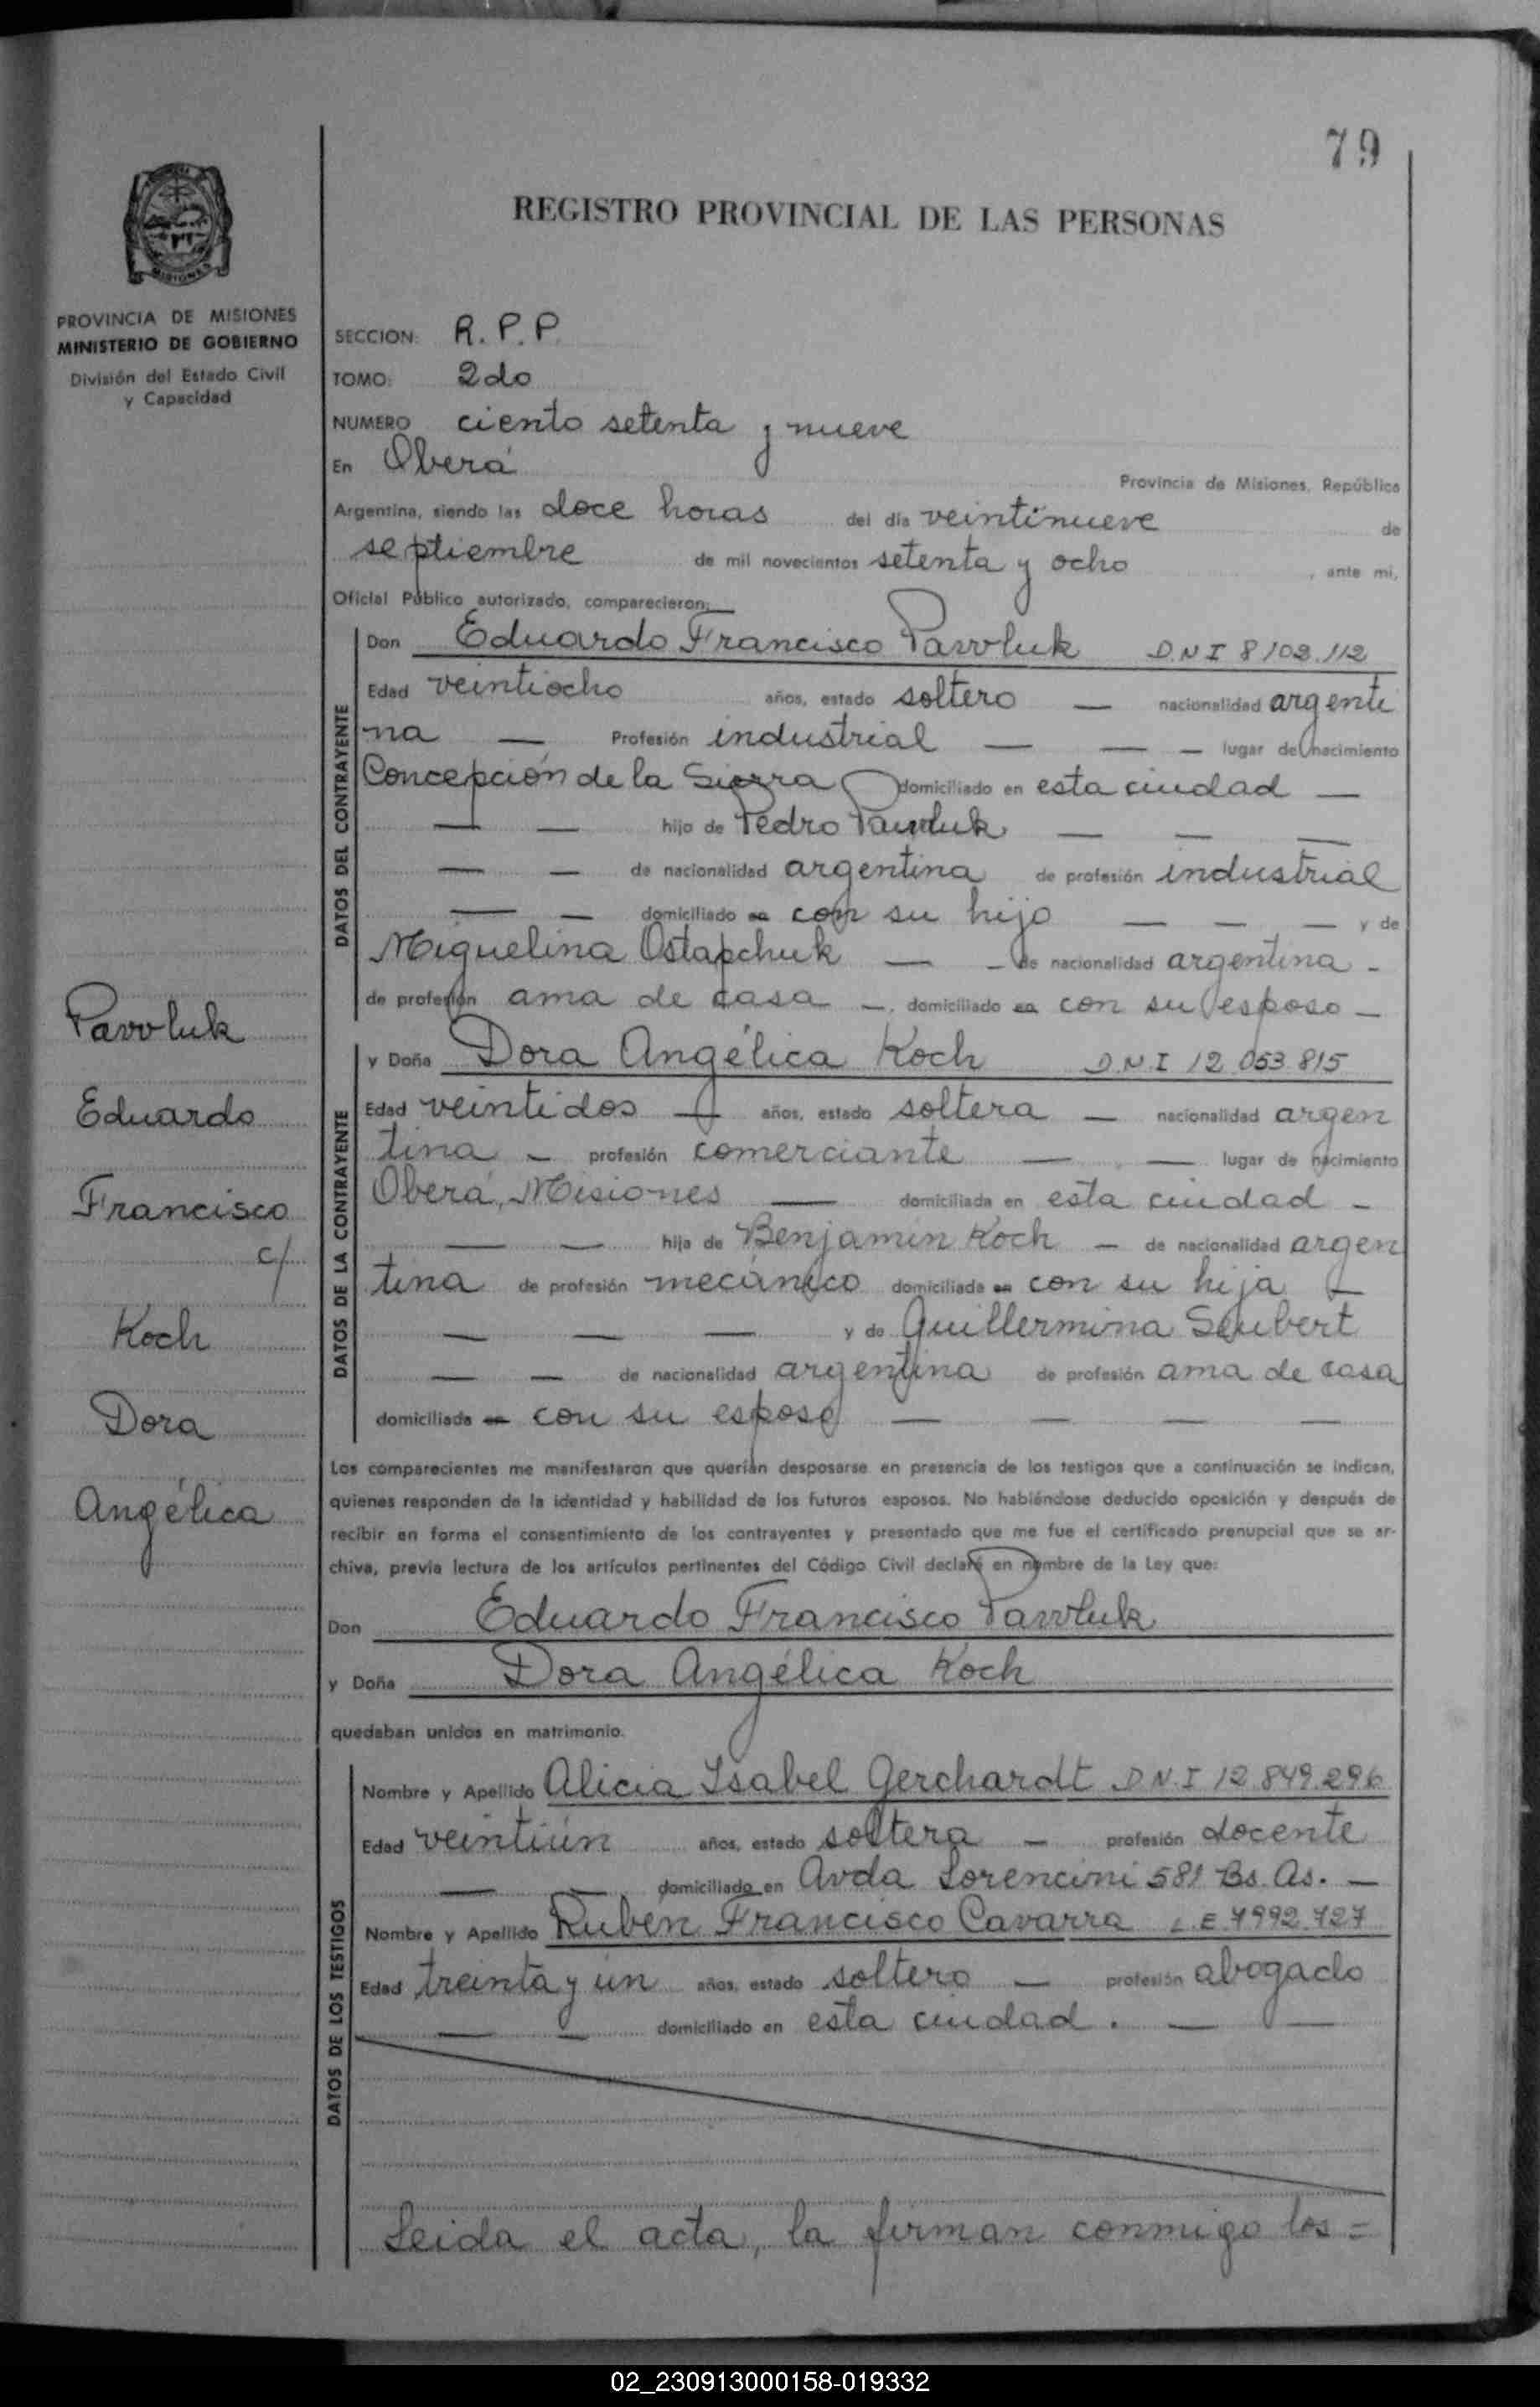 79
REGISTRO PROVINCIAL DE LAS PERSONAS
MISIONES
PROVINCIA DE MISIONES
MINISTERIO DE GOBIERNO
División del Estado Civil
y Capacidad
SECCION: R.P.P.
TOMO: 2do
NUMERO ciento setenta y nueve
En Oberá
Provincia de Misiones, República
Argentina, siendo las doce horas del día veintinueve de
septiembre de mil novecientos setenta y ocho, ante mi,
Oficial Público autorizado, comparecieron:
DATOS DEL CONTRAYENTE
Don Eduardo Francisco Pawluk D.N.I 8103.112
Edad veintiocho años, estado soltero — nacionalidad argenti
na — Profesión industrial — — — lugar de nacimiento
Concepción de la Sierra domiciliado en esta ciudad —
— — hijo de Pedro Pawluk — — —
— — de nacionalidad argentina de profesión industrial
— — domiciliado en con su hijo — — — y de
Miguelina Ostapchuk — - de nacionalidad argentina -
de profesión ama de casa —. domiciliado en con su esposo —
DATOS DE LA CONTRAYENTE
y Doña Dora Angélica Koch D.N.I 12.053.815
Edad veintidos — años, estado soltera — nacionalidad argen
tina - profesión comerciante — — lugar de nacimiento
Oberá, Misiones — domiciliada en esta ciudad -
— — hija de Benjamín Koch — de nacionalidad argen
tina de profesión mecánico domiciliado en con su hija —
— — — y de Guillermina Seubert
— — de nacionalidad argentina de profesión ama de casa
domiciliada en con su esposo — — — —
Los comparecientes me manifestaron que querían desposarse en presencia de los testigos que a continuación se indican,
quienes responden de la identidad y habilidad de los futuros esposos. No habiéndose deducido oposición y después de
recibir en forma el consentimiento de los contrayentes y presentado que me fue el certificado prenupcial que se ar-
chiva, previa lectura de los artículos pertinentes del Código Civil declaré en nombre de la Ley que:
Don Eduardo Francisco Pawluk
y Doña Dora Angélica Koch
quedaban unidos en matrimonio.
DATOS DE LOS TESTIGOS
Nombre y Apellido Alicia Isabel Gerchardt D.N.I 12.849.296
Edad veintiún años, estado soltera — profesión docente
— — domiciliado en Avda Lorencini 581 Bs. As. —
Nombre y Apellido Rubén Francisco Cavarra L.E 7992.727
Edad treinta y un años, estado soltero — profesión abogado
— — domiciliado en esta ciudad. — —
Leida el acta, la firman conmigo los =
Pawluk
Eduardo
Francisco
c/
Koch
Dora
Angélica
02_230913000158-019332